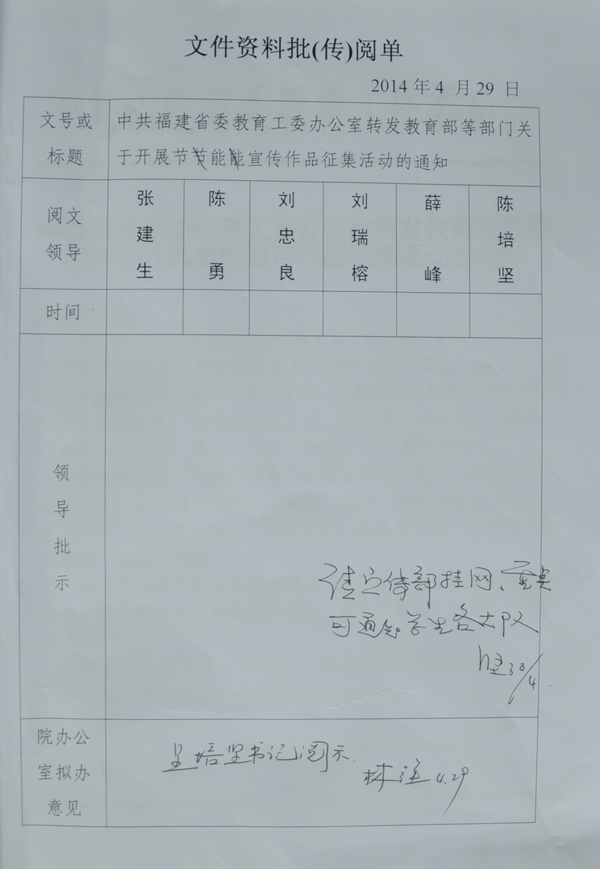 文件资料批(传)阅单
2014 年 4 月 29 日
文号或
标题
中共福建省委教育工委办公室转发教育部等部门关
于开展节节能能宣传作品征集活动的通知
阅文
领导
张建生
陈勇
刘忠良
刘瑞榕
薛峰
陈培坚
时间
领导批示
请宣传部挂网、重点
可通知学生各大队
坚 30/4
院办公
室拟办
意见
呈培坚书记阅示.
林 4.29